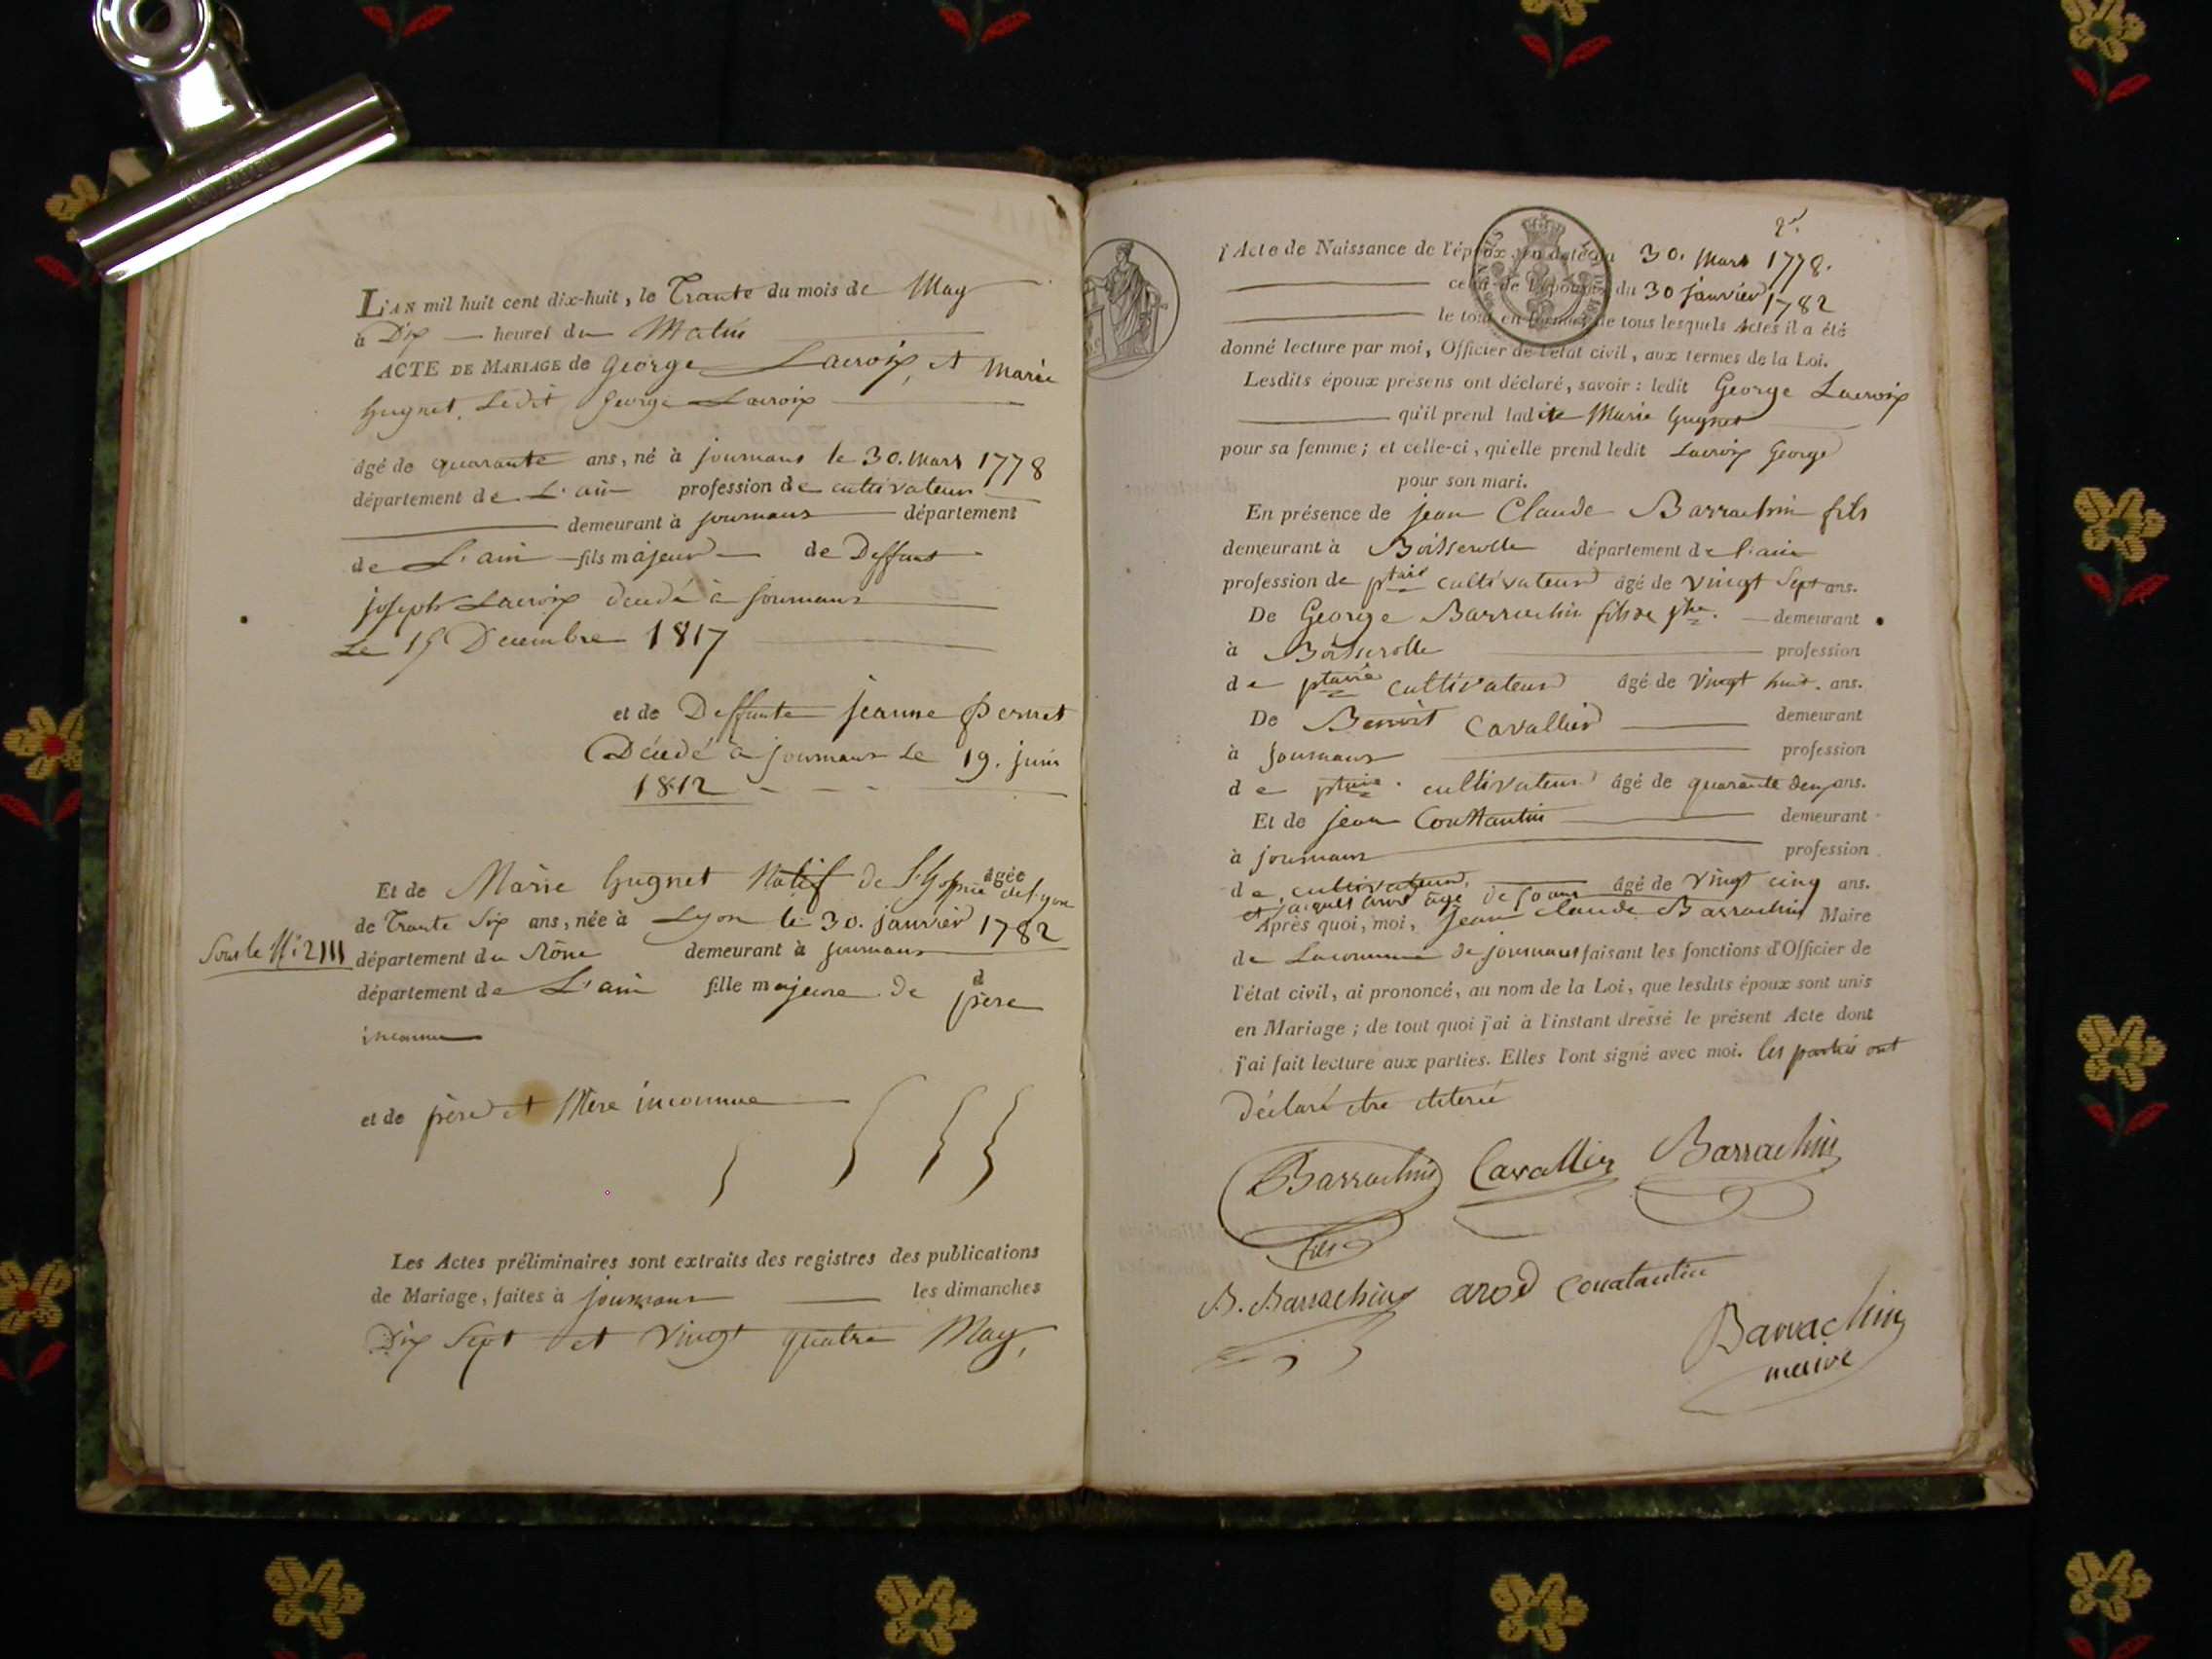 L'AN mil huit cent dix-huit, le Trante du mois de May
à Dix heures du Matin
ACTE DE MARIAGE de George Lacroix, et Marie
Gugnet. Ledit George Lacroix
âgé de quarante ans, né à journans le 30. Mars 1778
département de L'ain profession de cultivateur
demeurant à journans département
de L'ain fils majeur de Deffunt
joseph Lacroix décédé à journans
Le 15 Decembre 1817
et de Deffunte jeanne Pernet
Décédé à journans Le 19. juin
1812
Et de Marie Gugnet Natif de âgée
de Lyon
de Trante Six ans, née à Lyon le 30. janvier 1782
Sous le N: 2111
département du Rône demeurant à journans
département de L'ain fille majeure de père
inconnu
et de père et Mère inconnue
Les Actes préliminaires sont extraits des registres des publications
de Mariage, faites à journans les dimanches
Dix Sept et Vingt quatre May,
l'Acte de Naissance de l'époux en date du 30. Mars 1778.
celui de l'épouse du 30 janvier 1782
le tout en formes de tous lesquels Actes il a été
donné lecture par moi, Officier de l'état civil, aux termes de la Loi.
Lesdits époux présens ont déclaré, savoir : ledit George Lacroix
qu'il prend ladite Marie Gugnet
pour sa femme; et celle-ci, qu'elle prend ledit Lacroix George
pour son mari.
En présence de jean Claude Barrachin fils
demeurant à Boisserolle département de l'ain
profession de ptaire cultivateur âgé de vingt Sept ans.
De George Barrachin fils de demeurant
à Boisserolle profession
de ptaire cultivateur âgé de Vingt huit. ans.
De Benoit Cavallier demeurant
à journans profession
de ptaire. cultivateur âgé de quarante deux ans.
Et de jean Constantin demeurant
à journans profession
de cultivateur, âgé de Vingt cinq ans.
et jacques arod âgé de 50 ans
Après quoi, moi, Jean Claude Barrachin Maire
de La commune de journans faisant les fonctions d'Officier de
l'état civil, ai prononcé, au nom de la Loi, que lesdits époux sont unis
en Mariage; de tout quoi j'ai à l'instant dressé le présent Acte dont
j'ai fait lecture aux parties. Elles l'ont signé avec moi. les parties ont
déclaré être
Barrachin Cavallier Barrachin
fils
B. Barrachin arod Constantin
Barrachin
maire